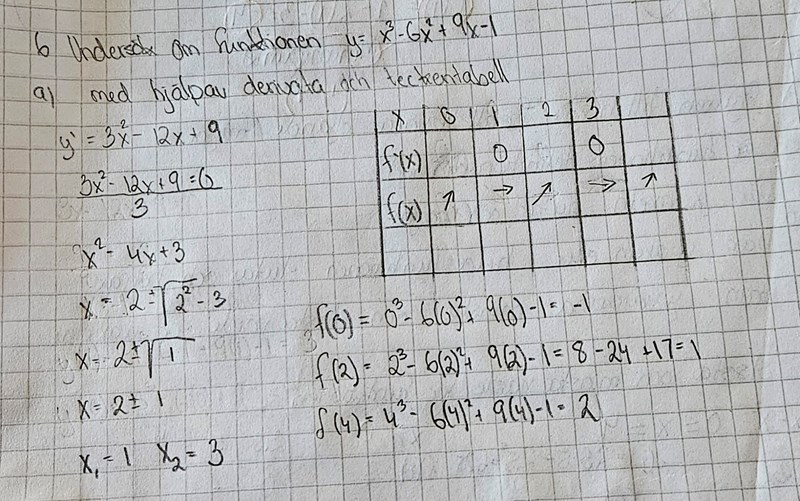 6 Undersök om funktionen y = x³-6x²+9x-1
a) med hjälpav derivata och teckentabell
y' = 3x²- 12x + 9
3x²- 12x+9=0
3
x²- 4x+3
x = 2 ± √2² - 3
x = 2 ± √1
x = 2 ± 1
x₁ = 1 x₂ = 3
x 0 1 2 3
f'(x) 0 0
f(x) ↗ → ↗ → ↗
f(0) = 0³ - 6(0)²+ 9(0)-1= -1
f(2) = 2³- 6(2)²+ 9(2)-1=8-24+17=1
f(4) = 4³- 6(4)²+ 9(4)-1= 2